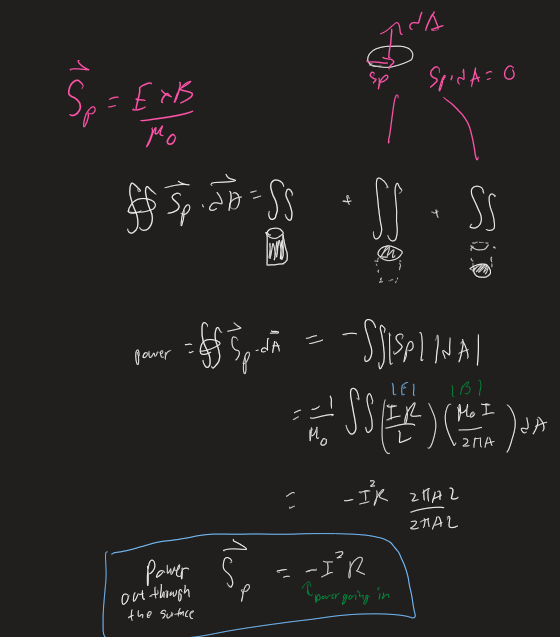 dA
Sp    Sp·dA = 0
S⃗p = E×B / μ₀
∯ S⃗p · dA⃗ = ∬ + ∬ + ∬
power = ∯ S⃗p · dA⃗ = -∬|Sp| |dA|
|E| |B|
= -1/μ₀ ∬ (IR/L) (μ₀ I / 2πA) dA
= -I²R 2πAL / 2πAL
Power out through the surface S⃗p = -I²R
↑ power going in